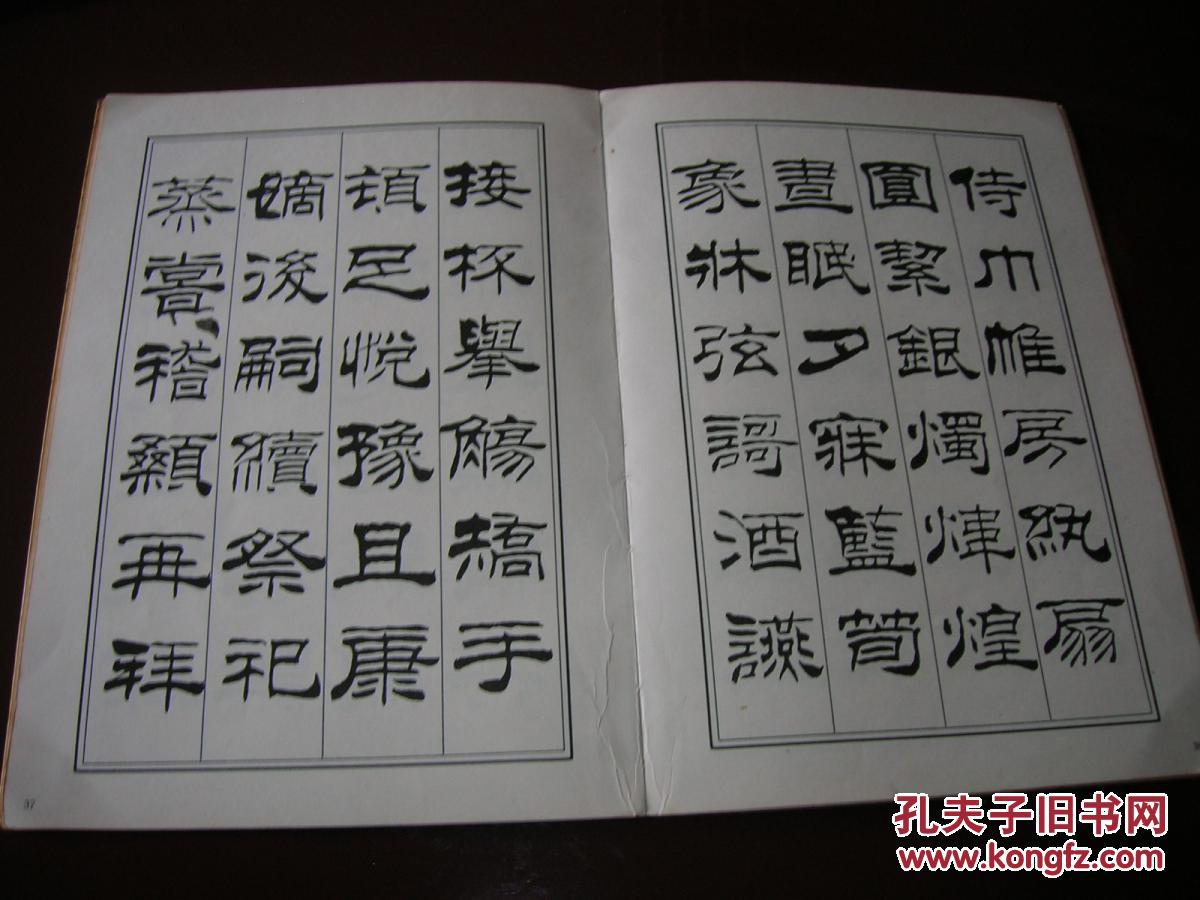 侍巾帷房紈扇
圓絜銀燭煒煌
晝眠夕寐藍筍
象牀弦謌酒讌
接杯舉觴矯手
頓足悅豫且康
嫡後嗣續祭祀
蒸嘗稽顙再拜
37
孔夫子旧书网
www.kongfz.com